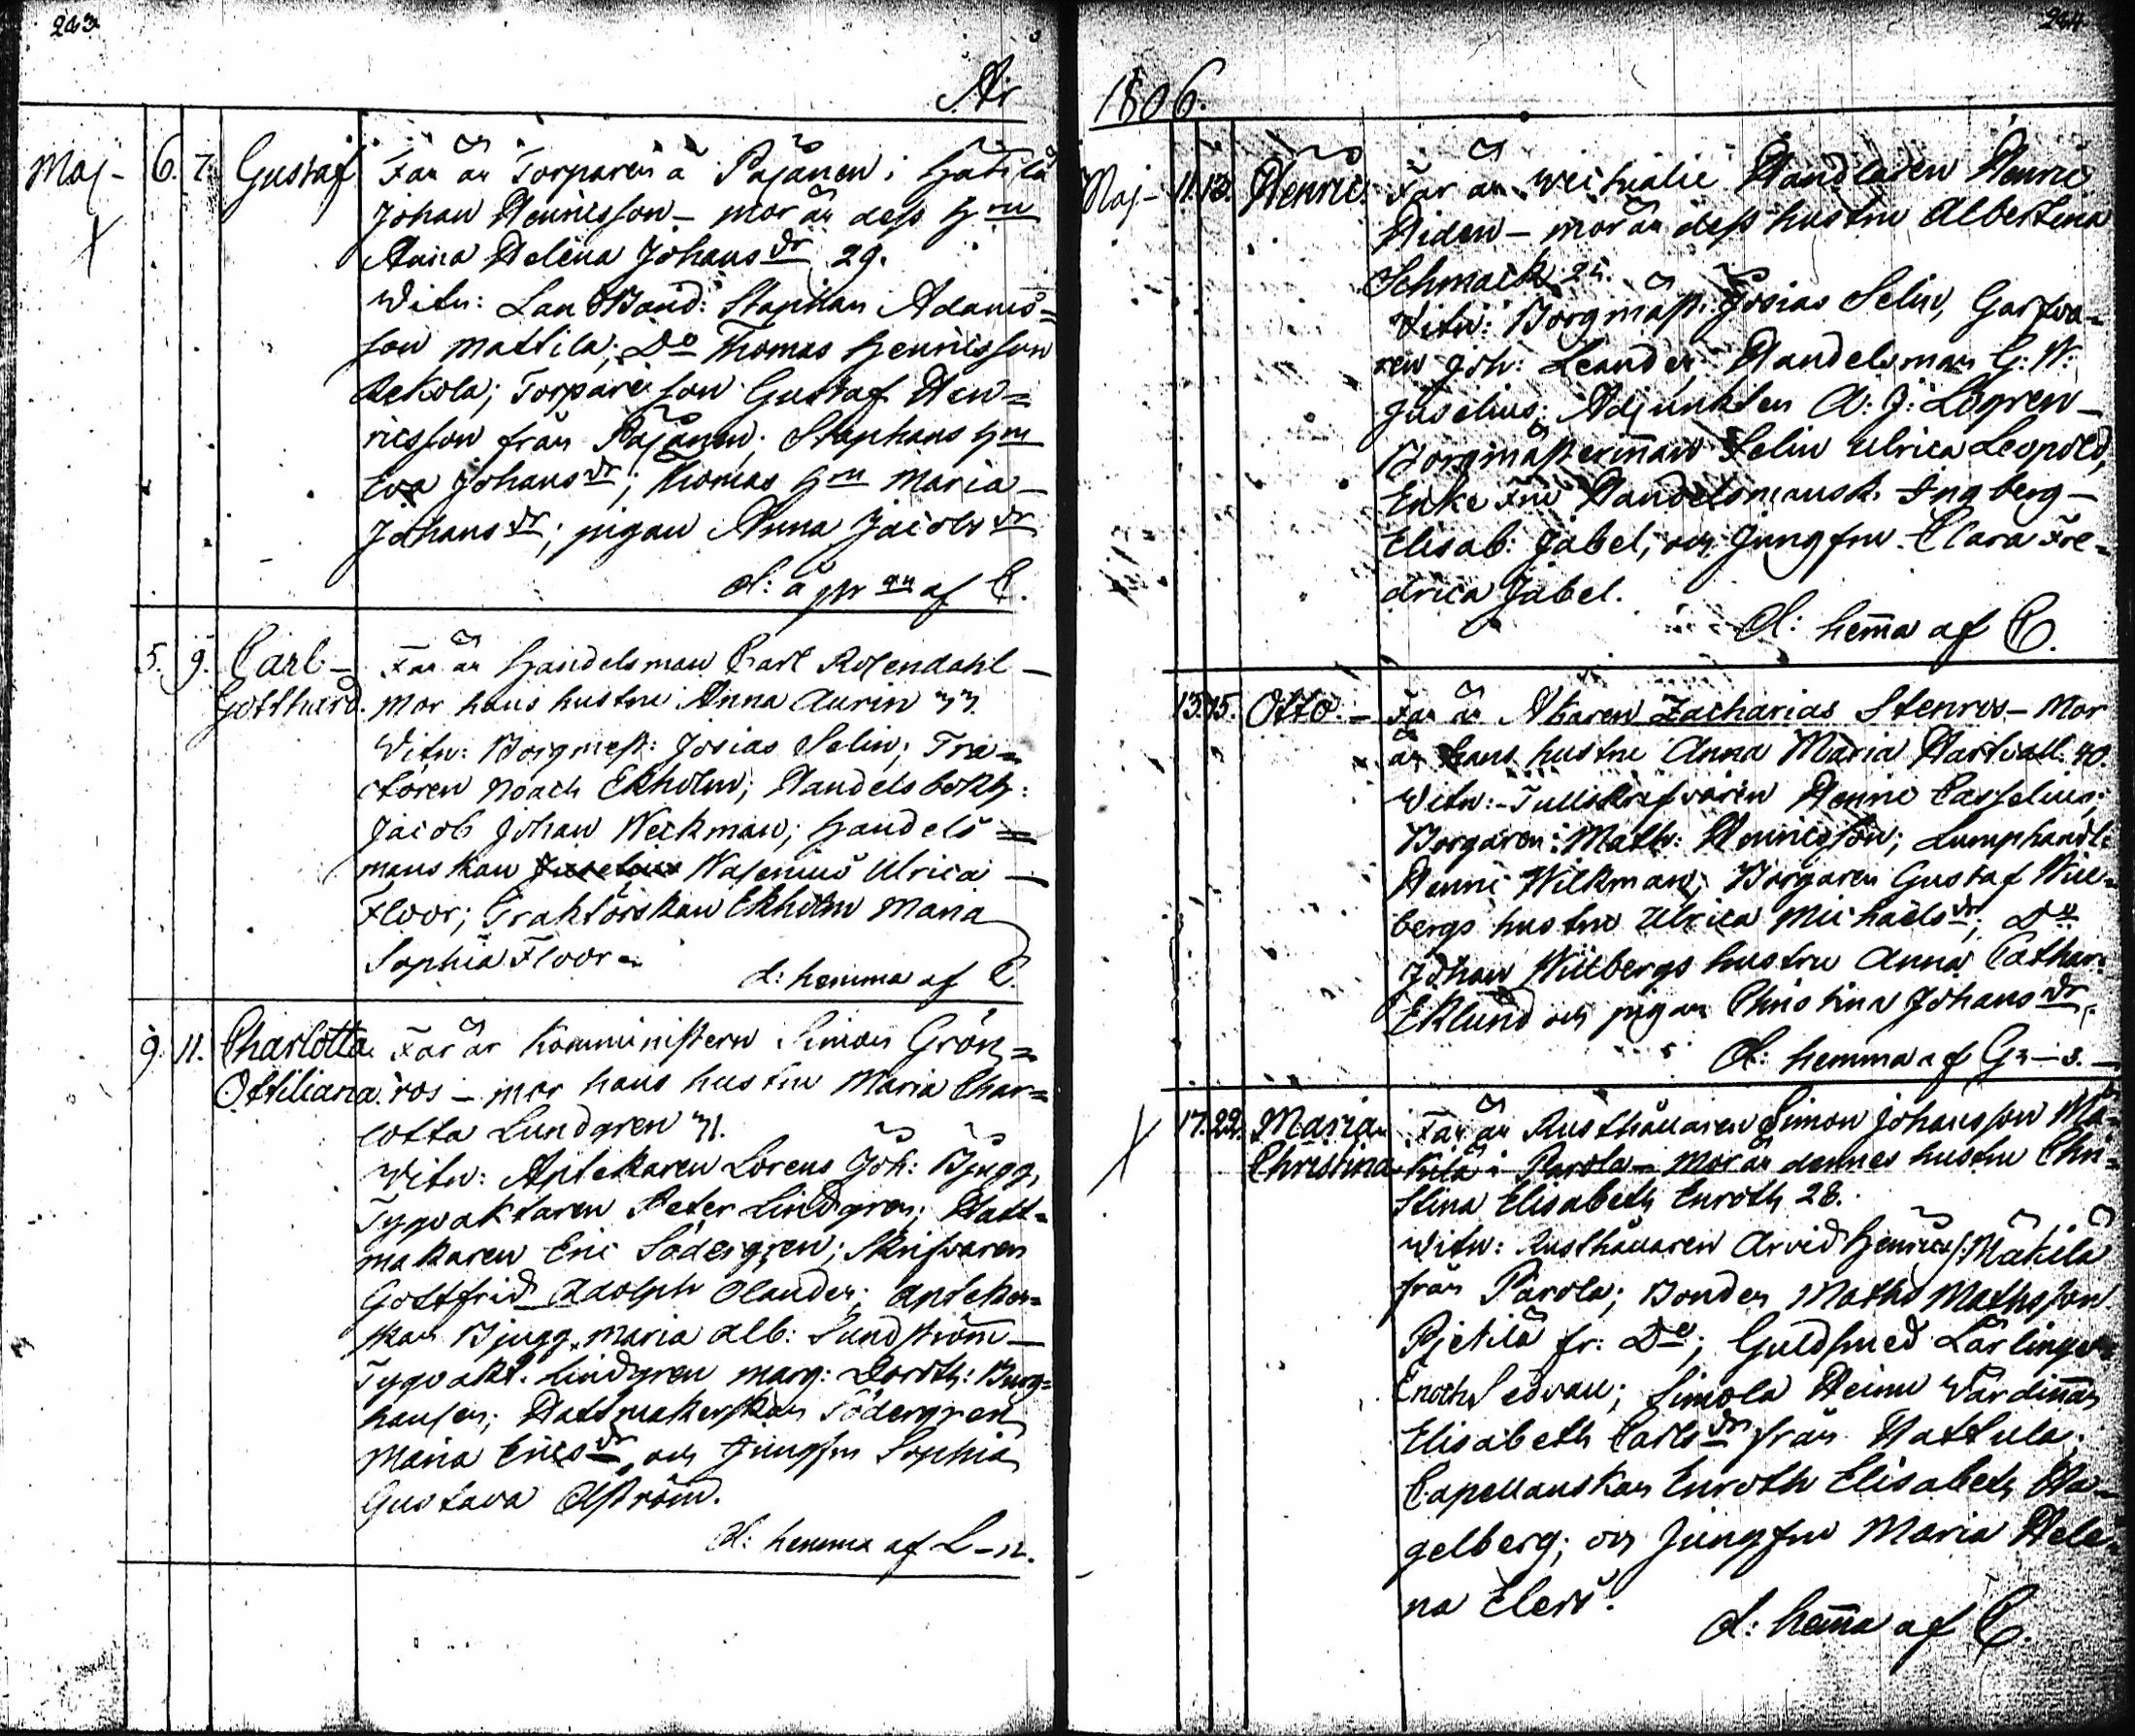 243
År
Maj - 6. 7. Gustaf Far är Torparen å Pajanen i Hätilä
Johan Henricsson - mor är dess hru
Anna Helena Johans dr 29.
Witn: Lan Bond: Staphan Adams=
son Mattila; Do Thomas Henricsson
Rekola; Torpare son Gustaf Hen=
ricsson från Pajanen; Staphans hru
Eva Johans dr; Thomas hru Maria -
Johans dr; pigan Anna Jacobs dr
d: å pr af C.
5. 9. Carl - Far är Handelsman Carl Rosendahl -
Gotthard. Mor hans hustru Anna Aurin 33.
Witn: Borgmest: Josias Selin; Tra=
ctören Noach Ekholm; Handelsbokh:
Jacob Johan Weckman; Handels=
manskan Wasenius Ulrica -
Floor; Traktörskan Ekholm Maria
Sophia Floor.
d: hemma af C.
9. 11. Charlotta Far är Kommministern Simon Grön=
Ottiliana. ros - mor hans hustru Maria Char=
lotta Lundgren 31.
Witn: Aptekaren Lorens Joh: Bjugg,
Tygvaktaren Peter Lindgren; Hatt=
makaren Eric Södergren; Skrifvaren
Gottfrid Adolph Olander; Apteker=
skan Bjugg Maria Alb: Sundström -
Tygvakt. Lindgren Marg: Doroth: Burg=
hausen; Hattmakerskan Södergren
Maria Erics dr och Jungfru Sophia
Gustava Alström.
d: hemma af L-n.
244
1806.
Maj - 11. 13. Henric. Far är Handlaren Henric
Hiden - mor är dess hustru Albertina
Schmack 25.
Witn: Borgmäst: Josias Selin, Garfva=
ren Joh: Leander; Handelsman G: W:
Juselius; Adjunkten A: J: Lögren -
Borgmästerinnan Selin Ulrica Leopold,
Enke Fru Handelsmansk. Ingberg -
Elisab: Jabel; och Jungfru Clara Fre=
drica Jabel.
d: hemma af C.
13. 15. Otto. - Far är Åkaren Zacharias Stenros - Mor
är hans hustru Anna Maria Hartvall. 40.
Witn: Tullskrifvaren Henric Casselius;
Borgaren Math: Henricsson; Lumphandl:
Henric Wilkman; Borgaren Gustaf Wiik=
bergs hustru Ulrica Michaels dr; Do
Johan Wikbergs hustru Anna Cathar:
Eklund och pigan Christina Johans dr.
d: hemma af Gr-s. -
17. 22. Maria Far är Rusthållaren Simon Johansson Mä=
Christina kilä i Parola - Mor är dennes hustru Chri=
stina Elisabeth Enroth 28.
Witn: Rusthållaren Arvid Henrics: Mäkilä
från Parola; Bonden Maths Mathsson
Pjetilä fr: Do; Guldsmed Lärlingen
Enoch Sedvall; Simola Heimo Värdinnan
Elisabeth Carls dr från Hattula;
Capellanskan Enroth Elisabeth Ha=
gelberg; och Jungfru Maria Hele=
na Elers.
d: hemma af C.